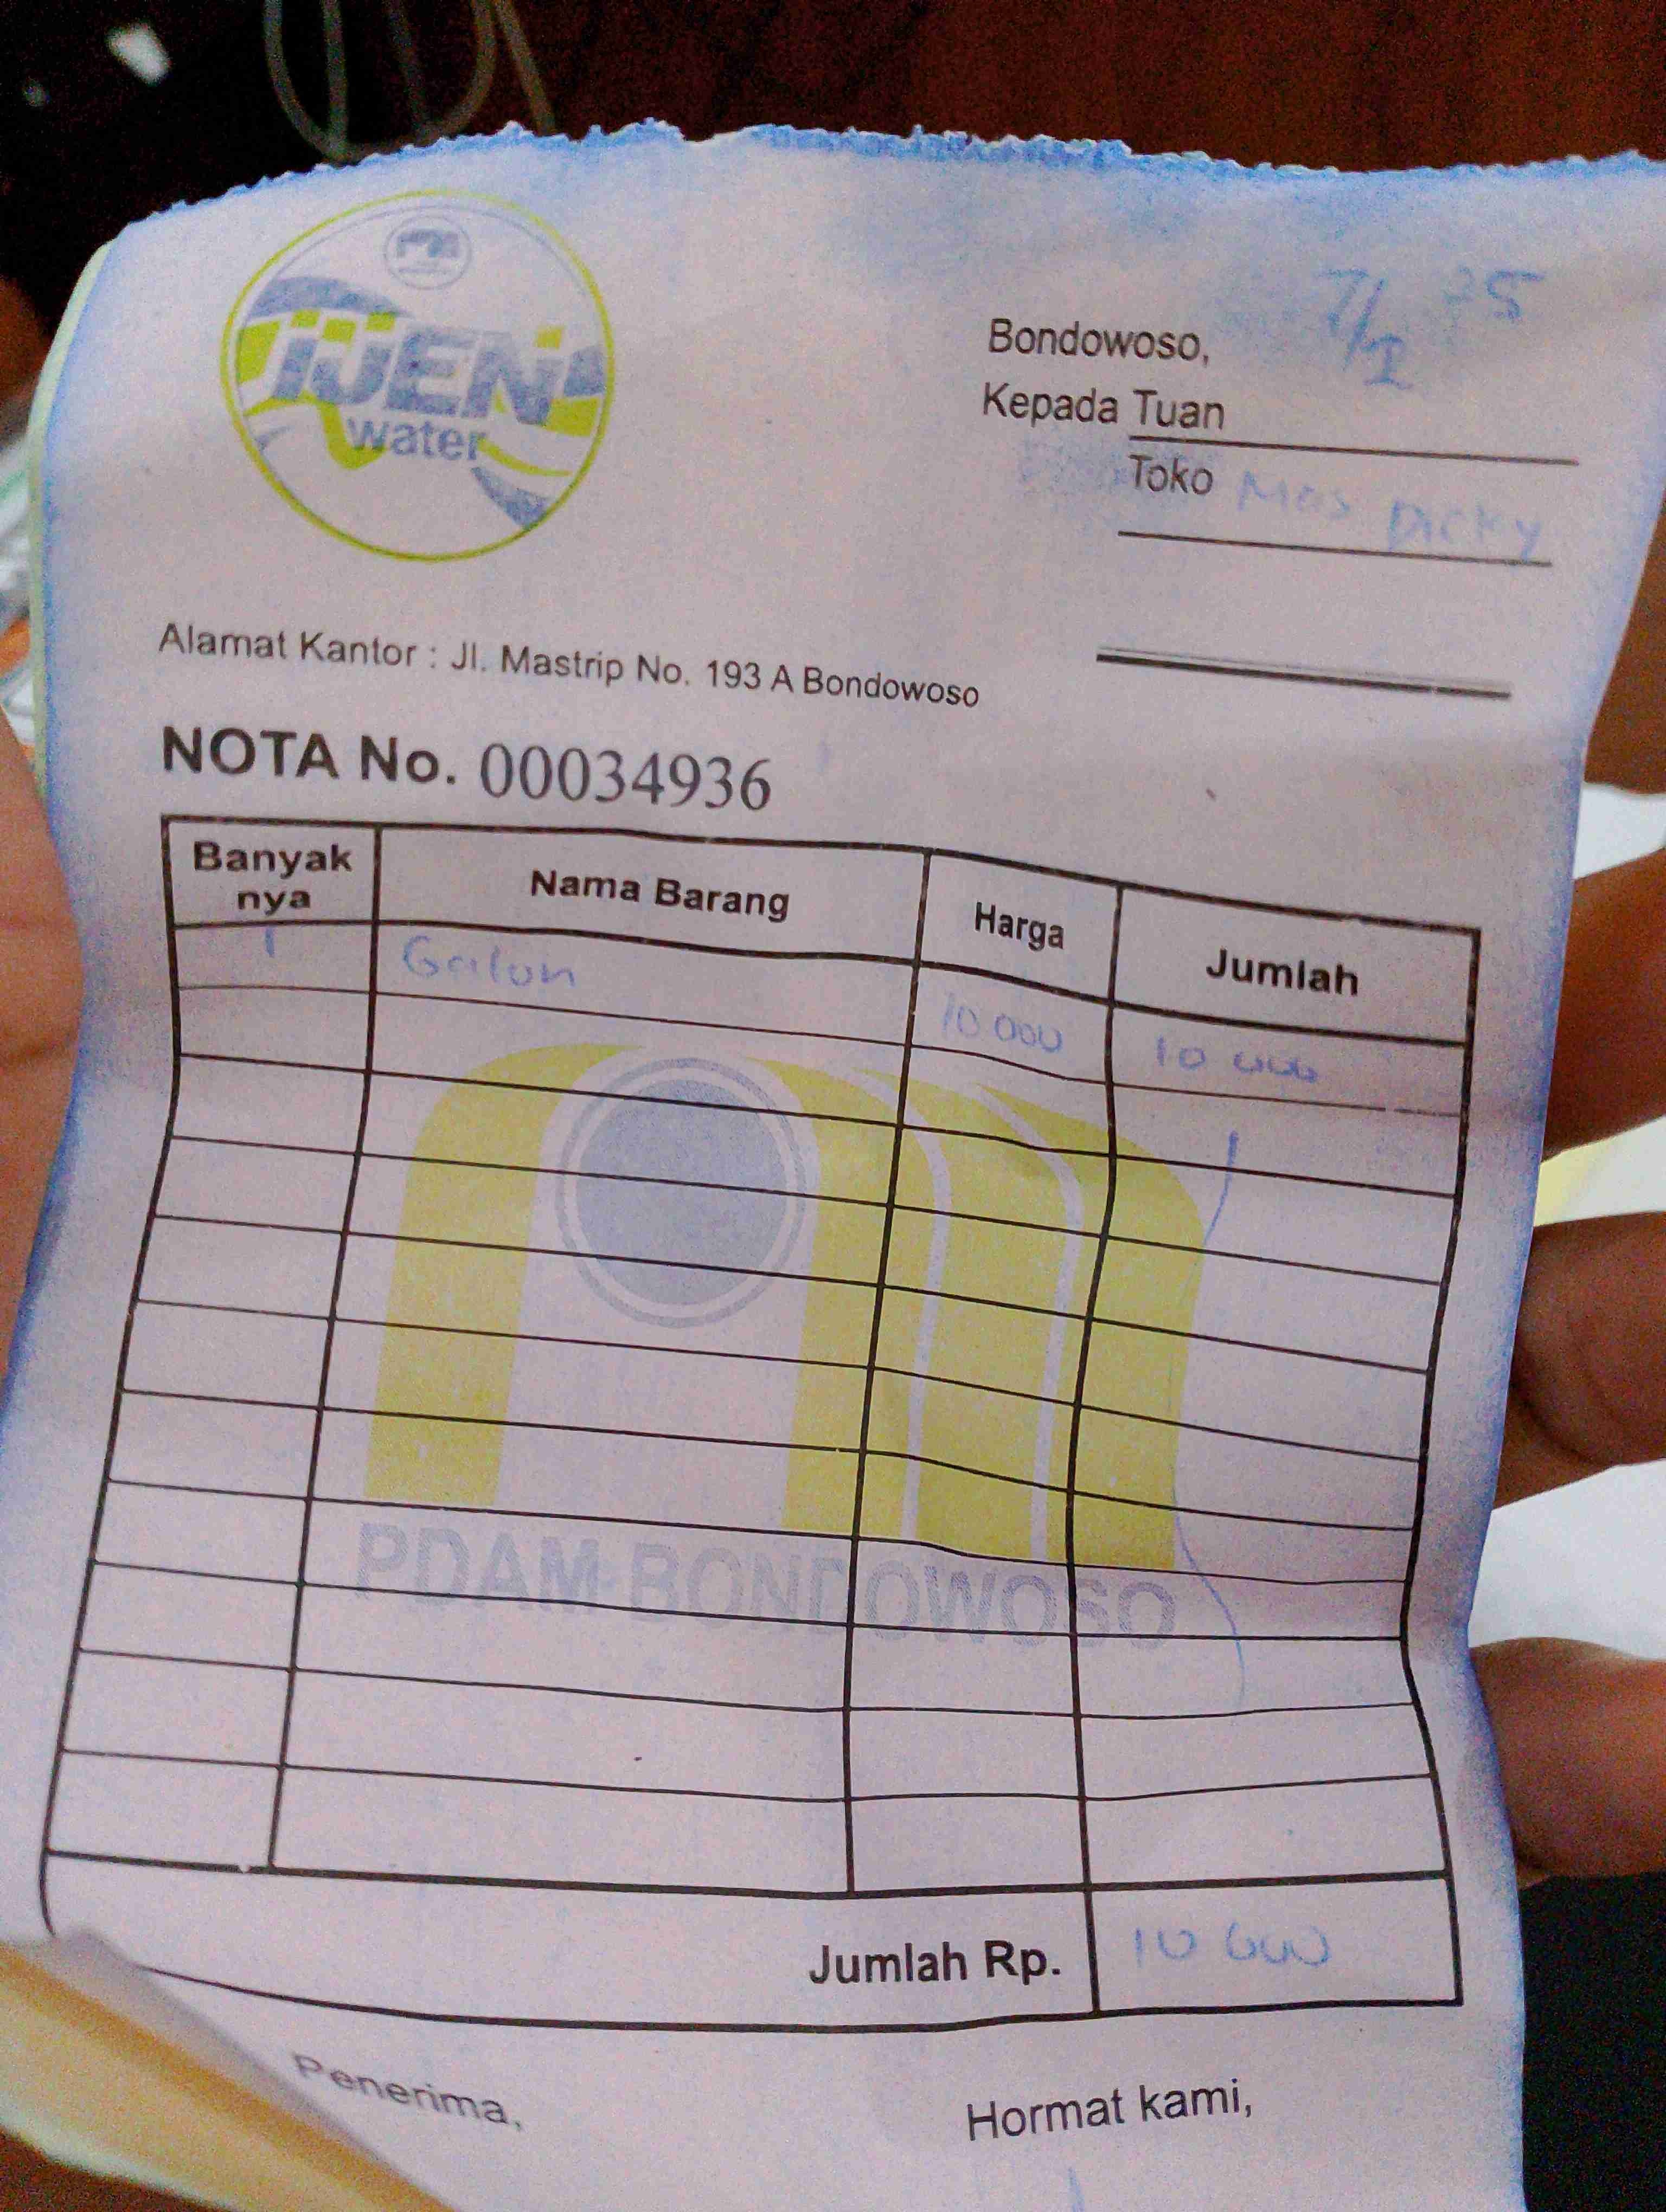 IJEN
water
7/1 25
Bondowoso,
Kepada Tuan
Toko Mas Dicky
Alamat Kantor : Jl. Mastrip No. 193 A Bondowoso
NOTA No. 00034936
Banyak nya Nama Barang Harga Jumlah
1 Galon 10 000 10 000
PDAM BONDOWOSO
Jumlah Rp. 10 000
Penerima, Hormat kami,